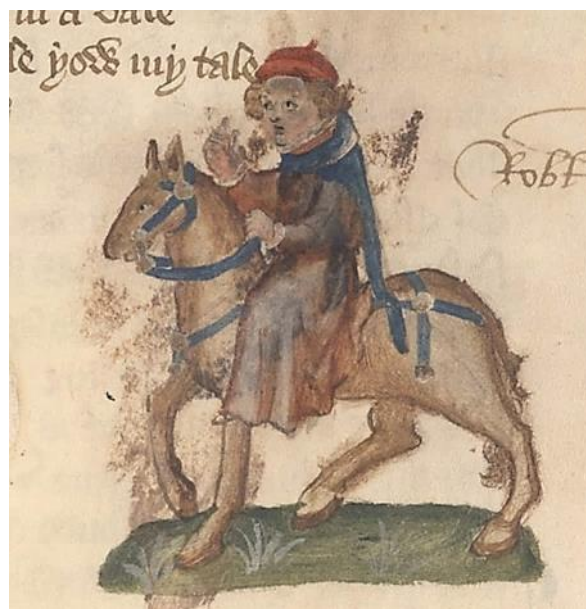 in a vale
se yow my tale
Robt